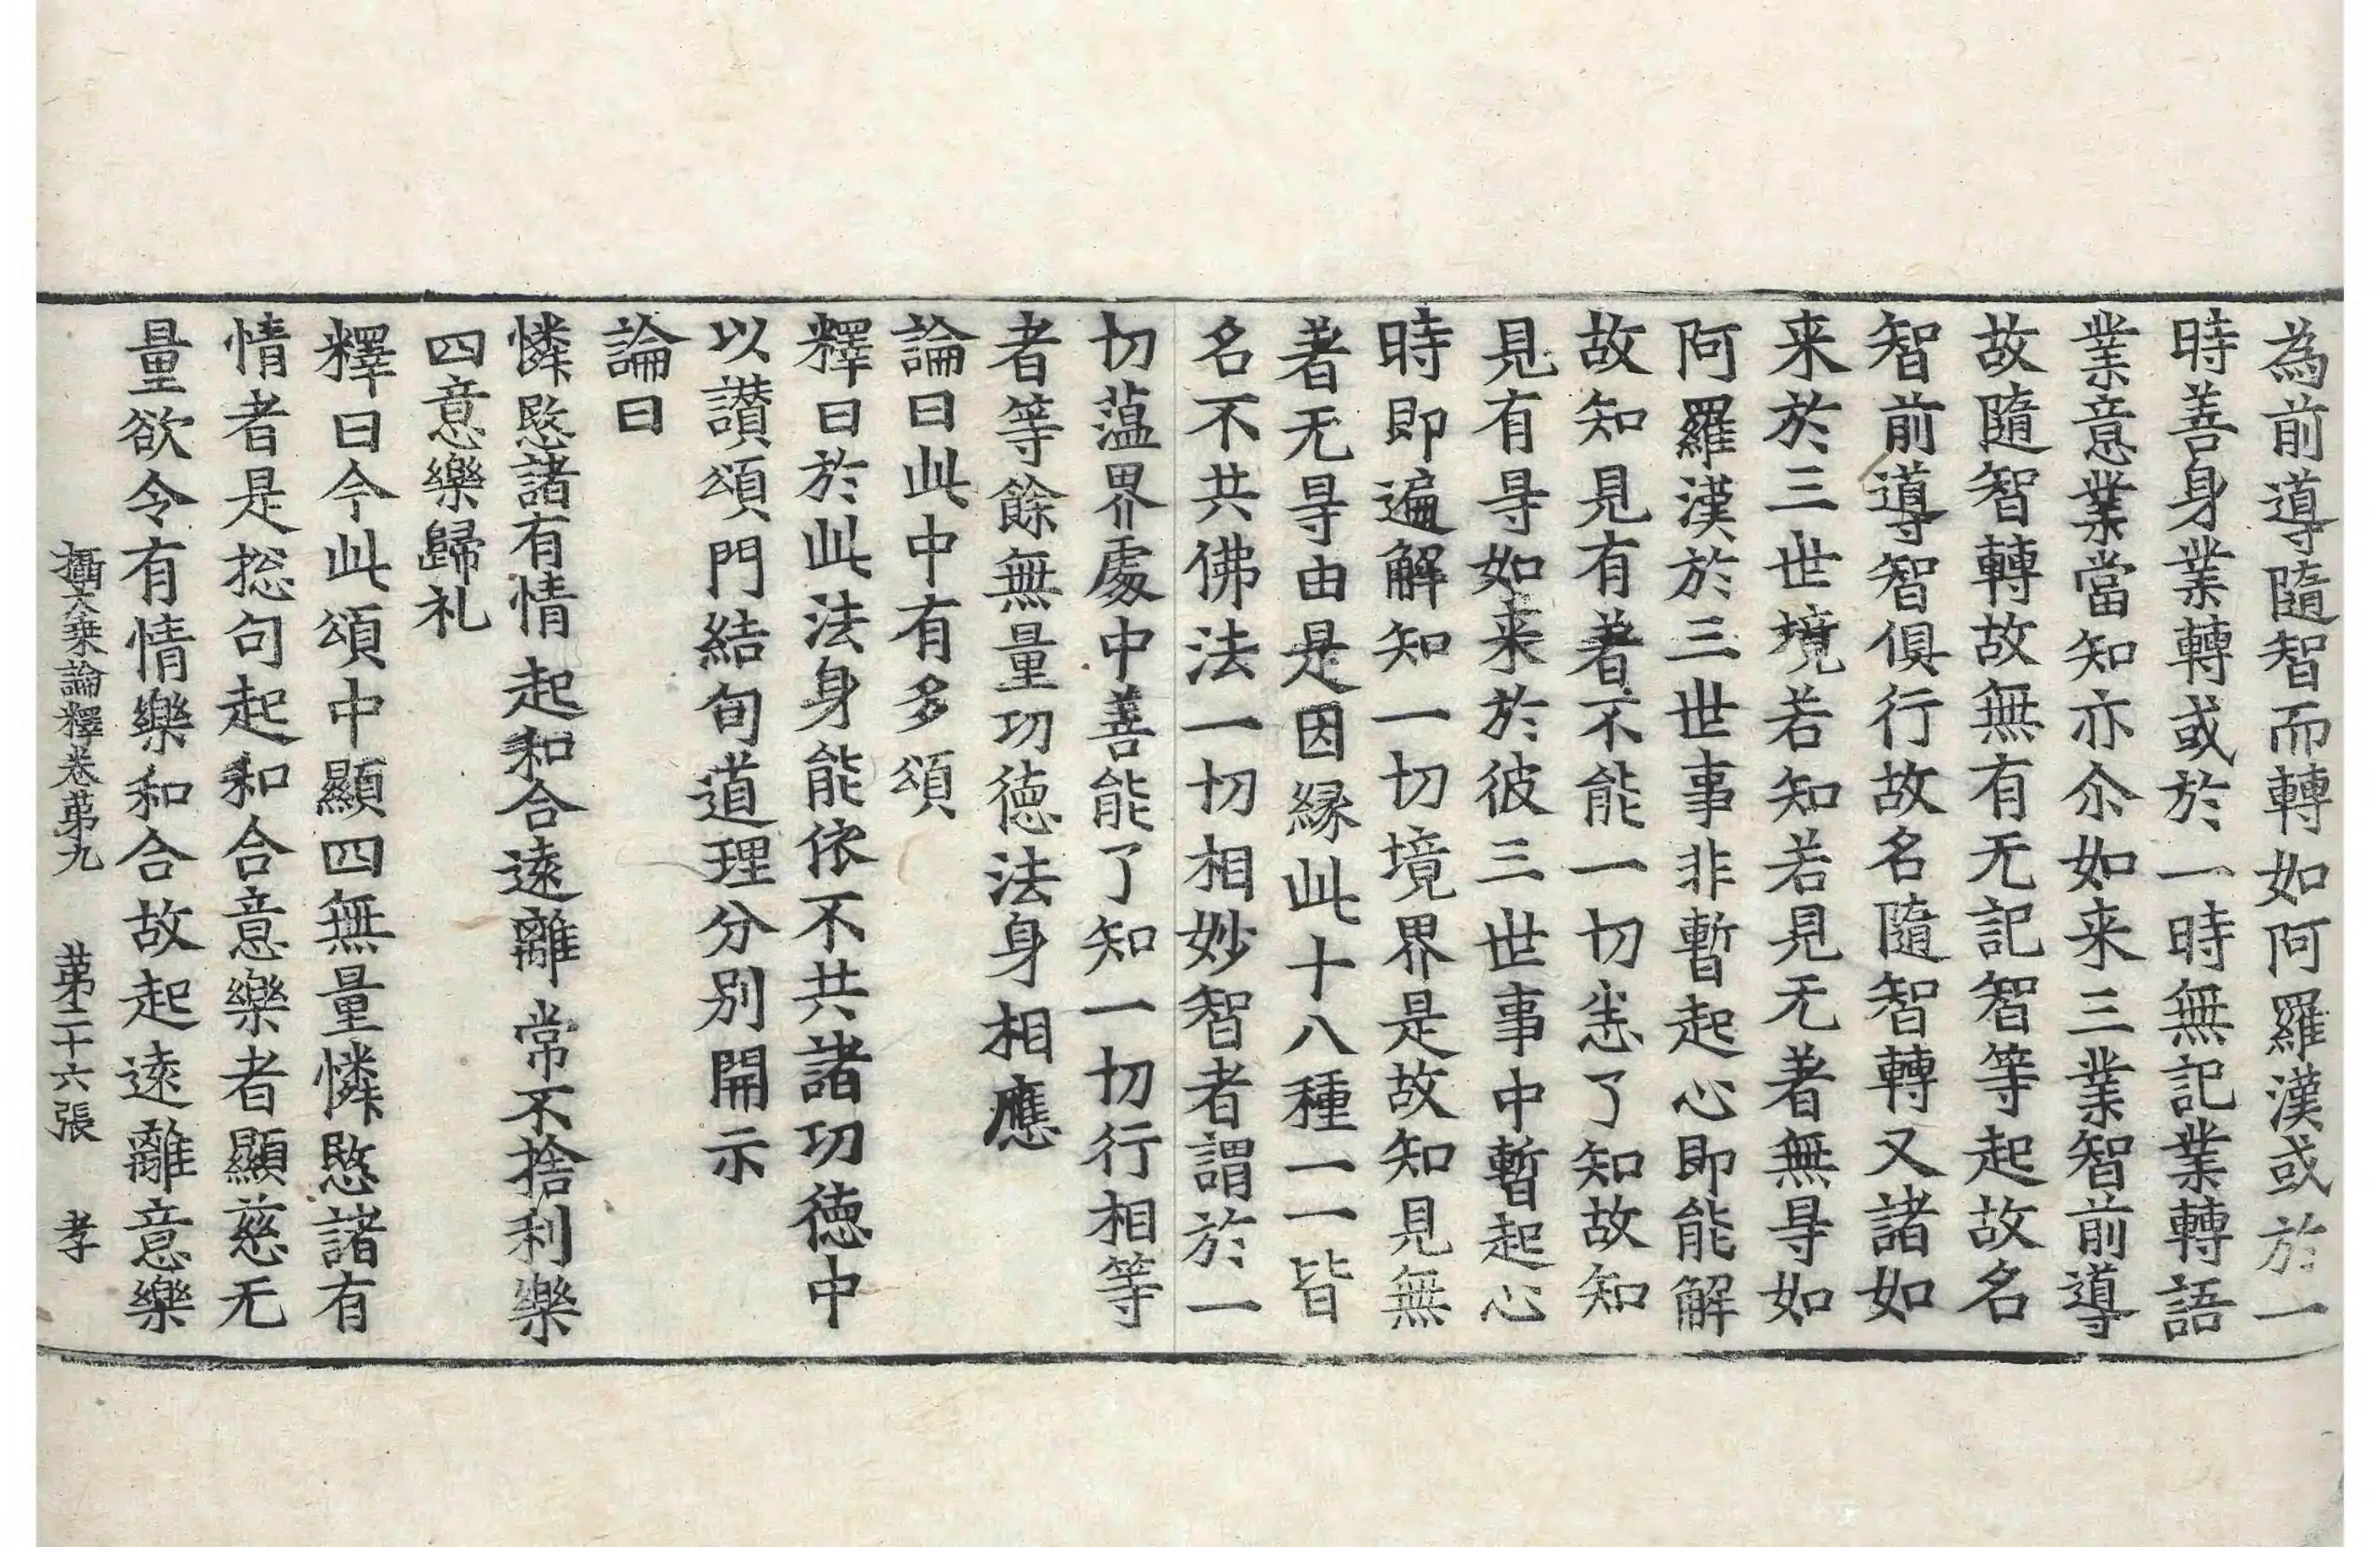 為前導隨智而轉如阿羅漢或於一
時善身業轉或於一時無記業轉語
業意業當知亦尒如来三業智前導
故隨智轉故無有无記智等起故名
智前導智俱行故名隨智轉又諸如
来於三世境若知若見无著無㝵如
阿羅漢於三世事非暫起心即能解
故知見有著不能一切恙了知故知
見有㝵如来於彼三世事中暫起心
時即遍解知一切境界是故知見無
著无㝵由是因縁此十八種一一皆
名不共佛法一切相妙智者謂於一
切薀界處中善能了知一切行相等
者等餘無量功德法身相應
論曰此中有多頌
釋曰於此法身能依不共諸功德中
以讃頌門結旬道理分別開示
論曰
憐愍諸有情 起和合遠離 常不捨利樂
四意樂歸礼
釋曰今此頌中顯四無量憐愍諸有
情者是捴句起和合意樂者顯慈无
量欲令有情樂和合故起遠離意樂
攝大乘論釋卷苐九 苐二十六張 孝